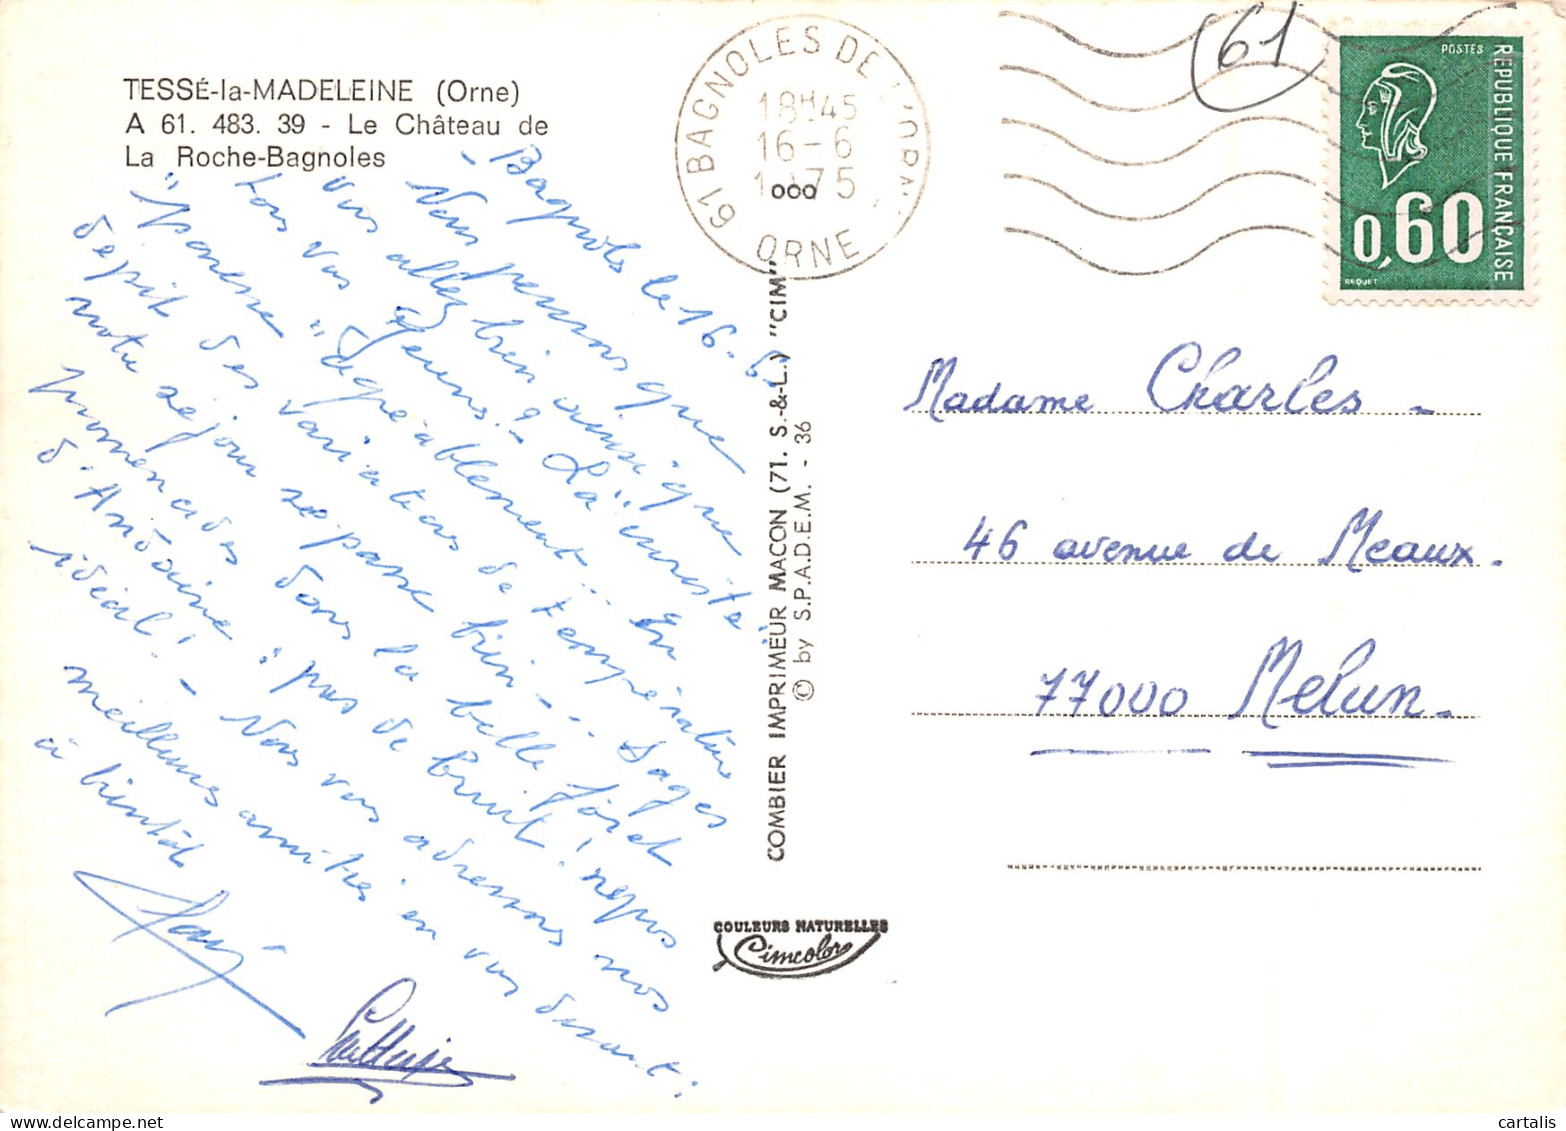 TESSÉ-la-MADELEINE (Orne)
A 61. 483. 39 - Le Château de
La Roche-Bagnoles
- Bagnoles le 16-6
Nous pensons que
vous allez bien ainsi que
tous vos jeunes! - La "curiste"
"paresse" "agréablement"... En
dépit des variations de température
notre séjour se passe bien -. Sages
promenades dans la belle forêt
d'Andaine : pas de bruit! repos
idéal! - Nous vous adressons nos
meilleures amitiés en vous disant :
à bientôt
61 BAGNOLES DE L'ORNE
18H45
16-6
1975
ooo
ORNE
61
POSTES
REPUBLIQUE FRANÇAISE
0,60
BEQUET
COMBIER IMPRIMEUR MACON (71. S.-&-L.) "CIM"
© by S.P.A.D.E.M. - 36
Madame Charles -
46 avenue de Meaux.
77000 Melun.
COULEURS NATURELLES
Cimcolor
cartalis